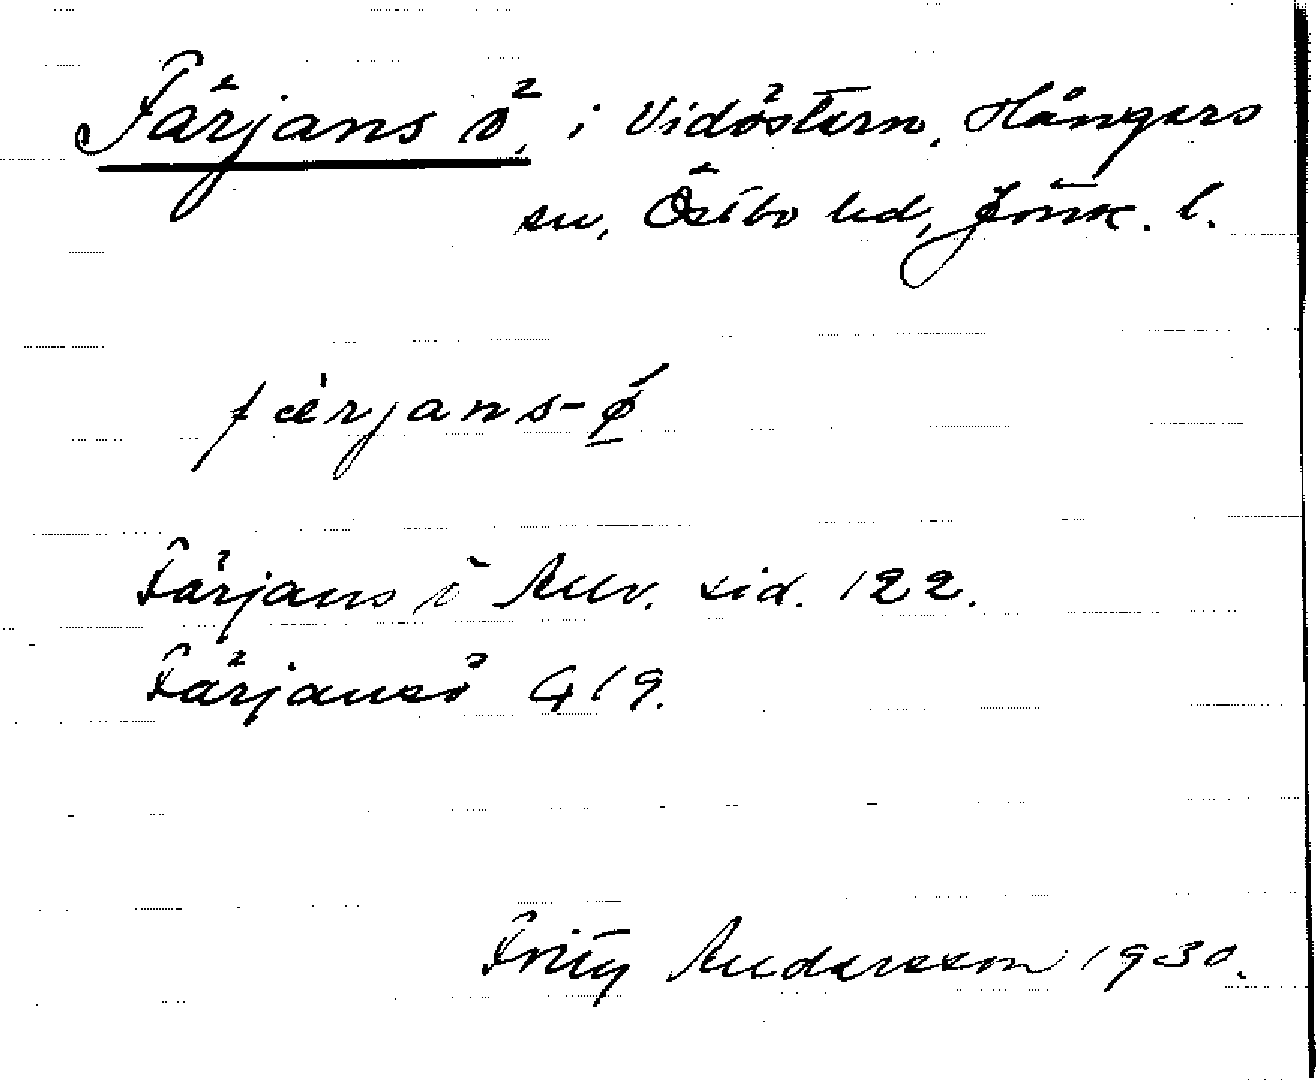 Färjans ö, i Vidöstern, Hångers
sn, Östbo hd, Jönk. l.
færjans-ø
Färjans ö Allv. sid. 122.
Färjansö G 19.
Fritz Andersson 1930.